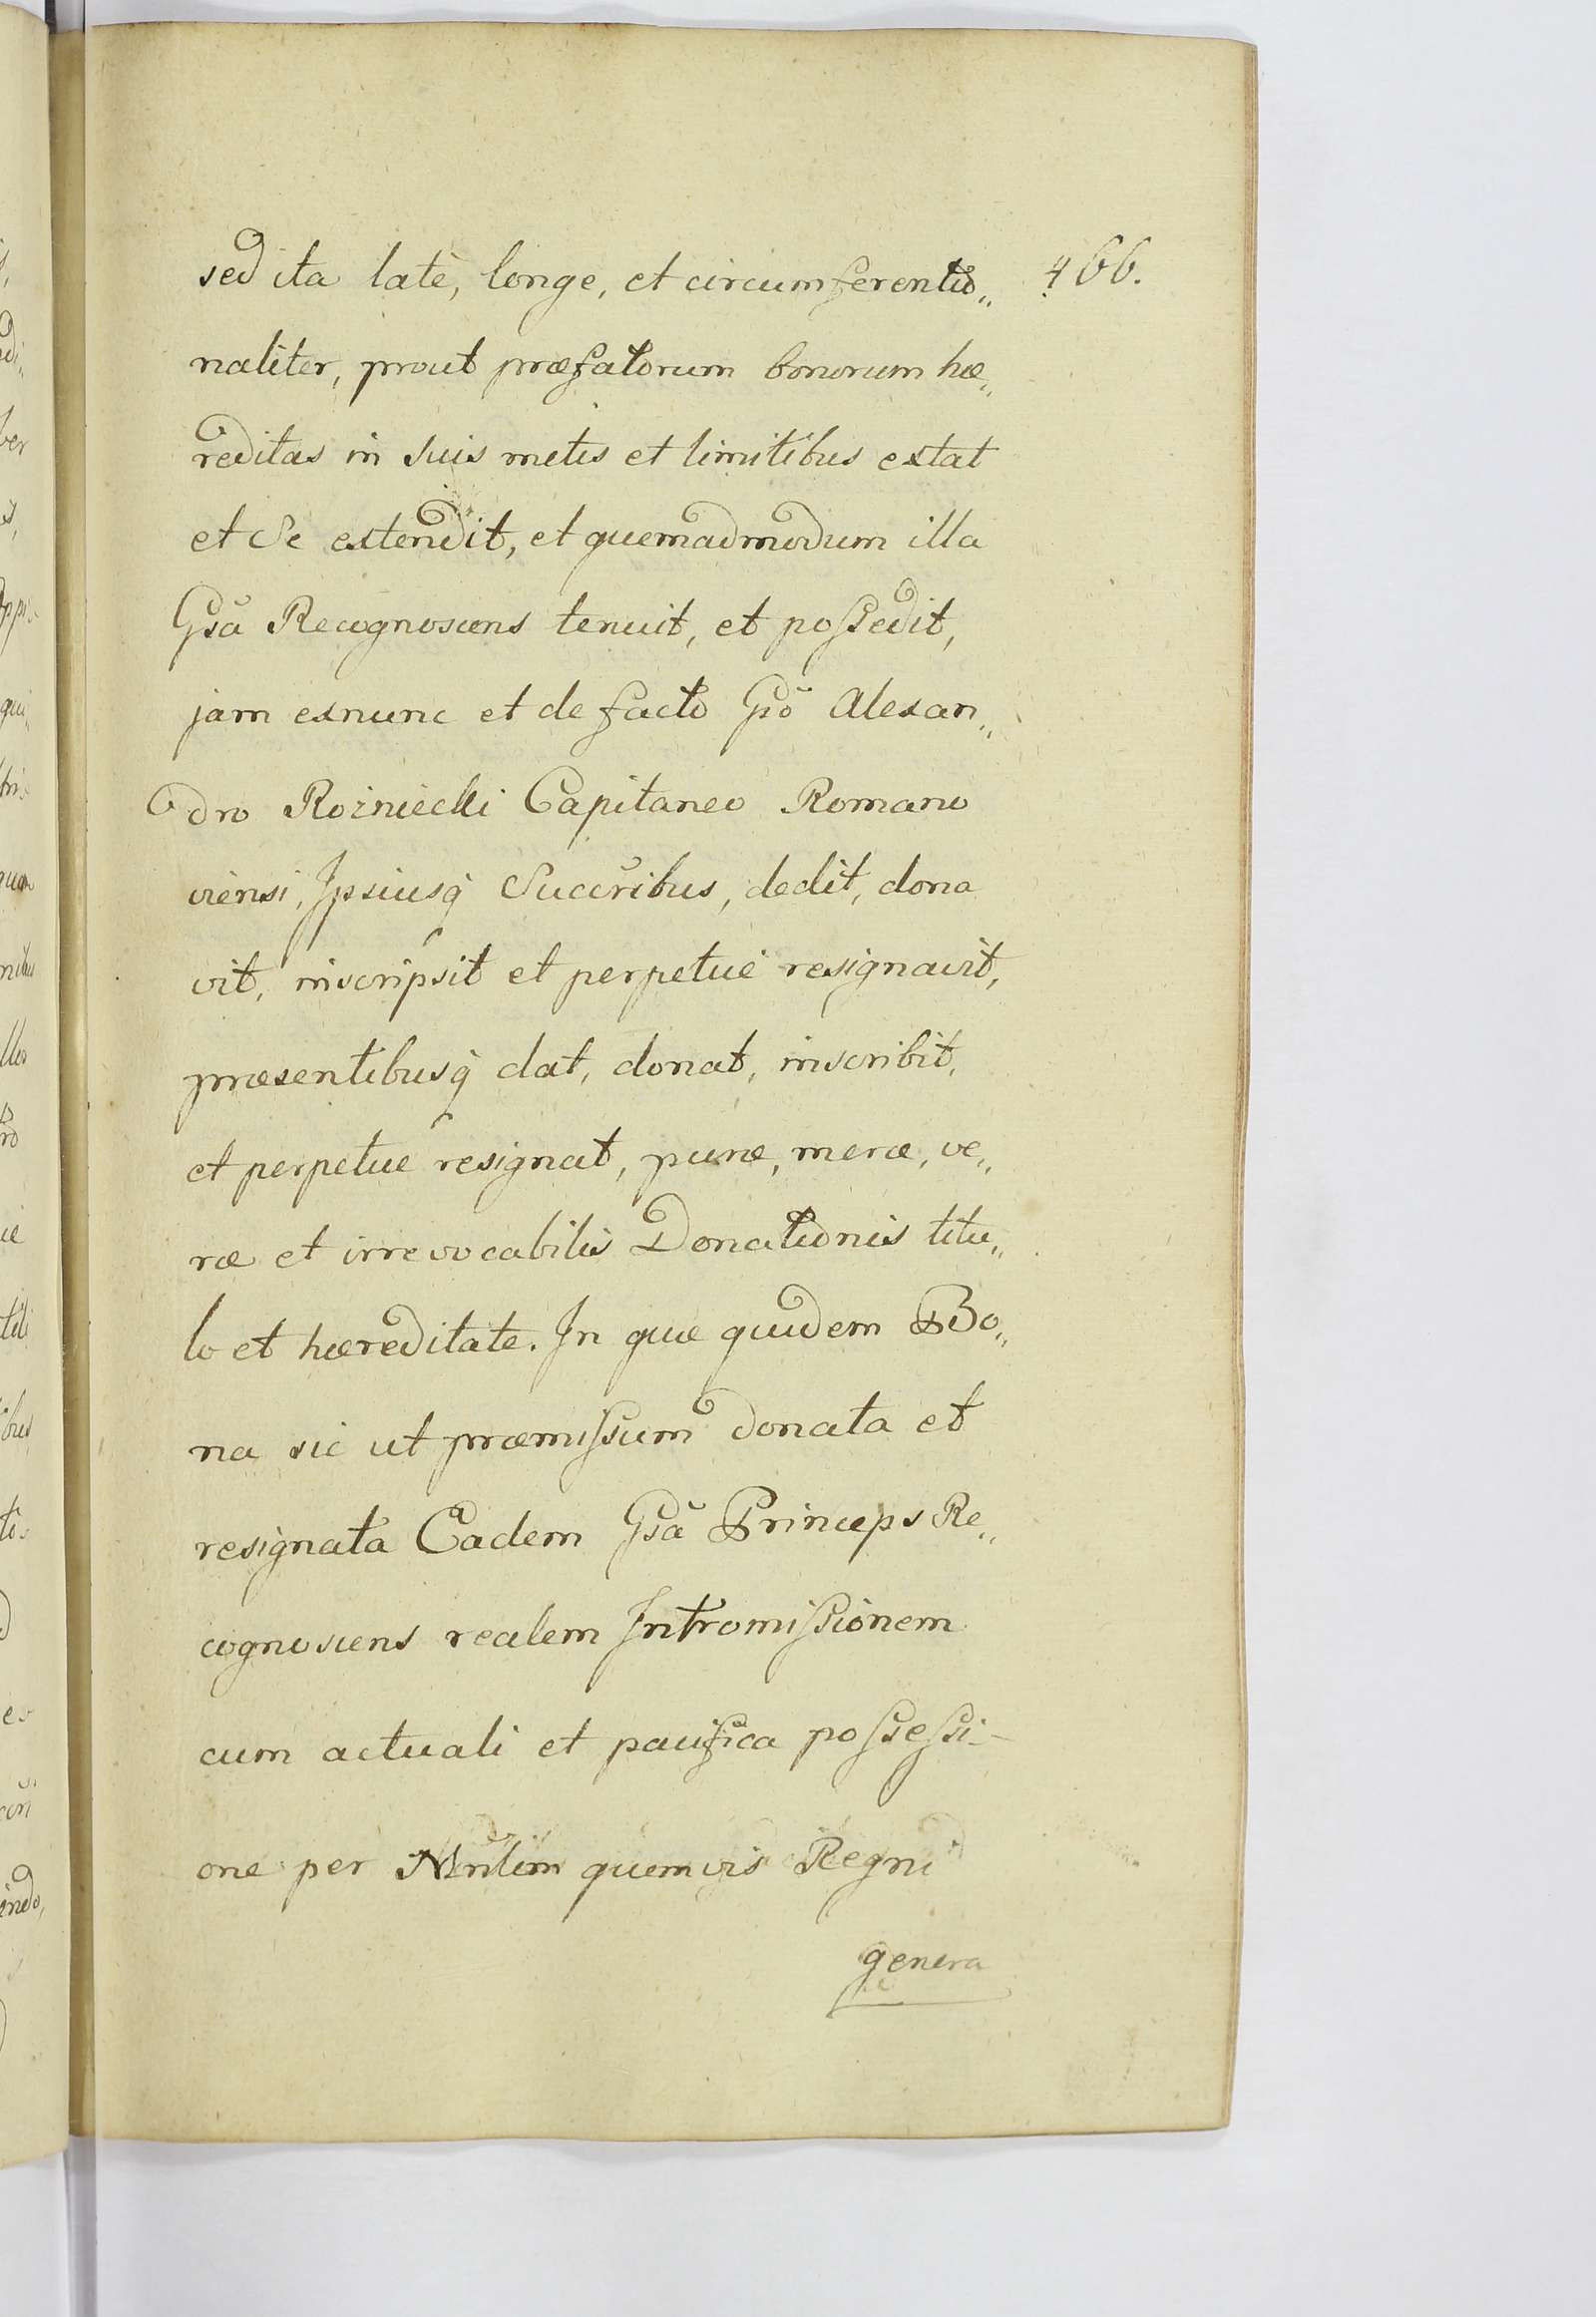 sed ita latè, longe, et circumferentio„ 466.
naliter, prout præfatorum bonorum hæ„
reditas in suis metis et limitibus extat
et se extendit, et quemadmodum illa
Gsã Recognoscens tenuit, et possedit,
jam exnunc et de facto Gsõ Alexan„
dro Rozniecki Capitaneo Romano
viensi, Ipsiusq̃ Succr̃ibus, dedit, dona
vit, inscripsit et perpetuè resignavit,
præsentibusq̃ dat, donat, inscribit,
et perpetue resignat, puræ, meræ, ve„
ræ et irrevocabilis Donationis titu„
lo et hæreditate. In quæ quidem Bo„
na sic ut præmissum donata et
resignata Eadem Gsã Princeps Re„
cognoscens realem Intromissionem
cum actuali et pacifica possessi-
one per Mnr̃lem quemvis Regni
genera